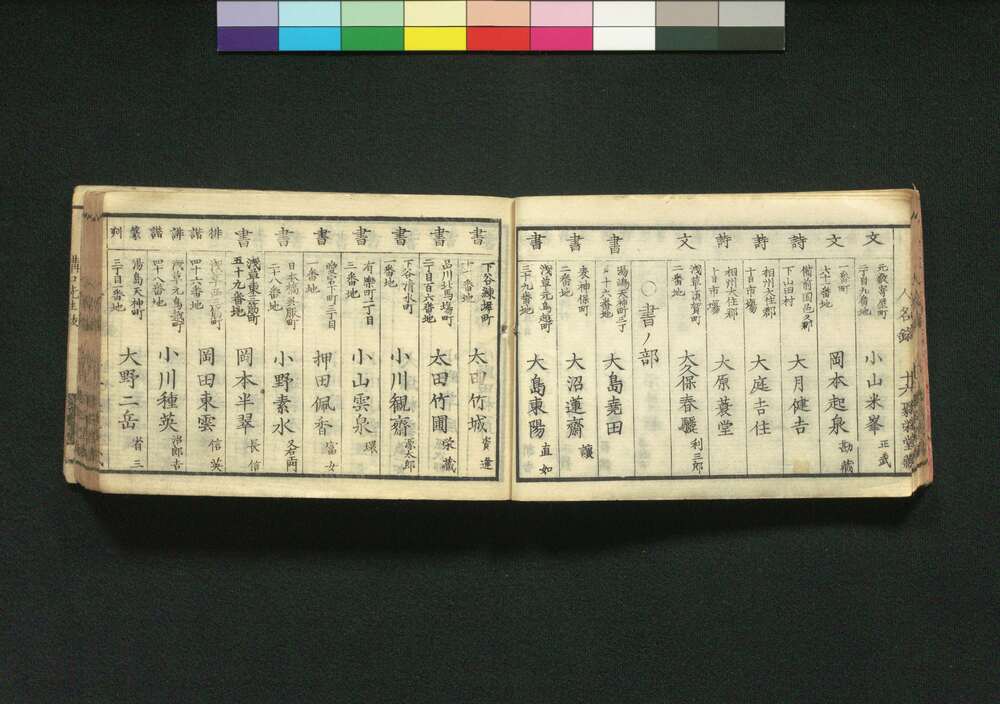 文 元数寄屋町二丁目九番地 小山米峯 正武
文 一番町六十一番地 岡本起泉 勘藏
詩 備前国邑久郡下山田村 大月健吉
詩 相州大住郡十日市場 大庭吉住
詩 相州大住郡十日市場 大原蓑堂
文 浅草須賀町二番地 大久保春驪 利三郎
〇書ノ部
書 湯嶋天神町三丁 十六番地 大島堯田
書 表神保町二番地 大沼蓮齋 讓
書 浅草元鳥越町三十九番地 大島東陽 直如
書 下谷練塀町十一番地 太田竹城 資蓮
書 品川北馬場町二百六番地 太田竹圃 栄藏
書 下谷清水町一番地 小川観齋 源太郎
書 有楽町二丁目三番地 小山雲泉 環
書 愛宕下町三丁目一番 押田佩香 富女
書 日本橋呉服町二十八番地 小野素水 又右衛門
書 浅草東三筋町五十九番地 岡本半翠 長信
俳諧 浅草西三筋町四十六番地 岡田東雲 信英
俳諧 浅草元鳥越町四十八番地 小川種英 治郎吉
篆刻 湯島天神町三丁目一番地 大野二岳 省三